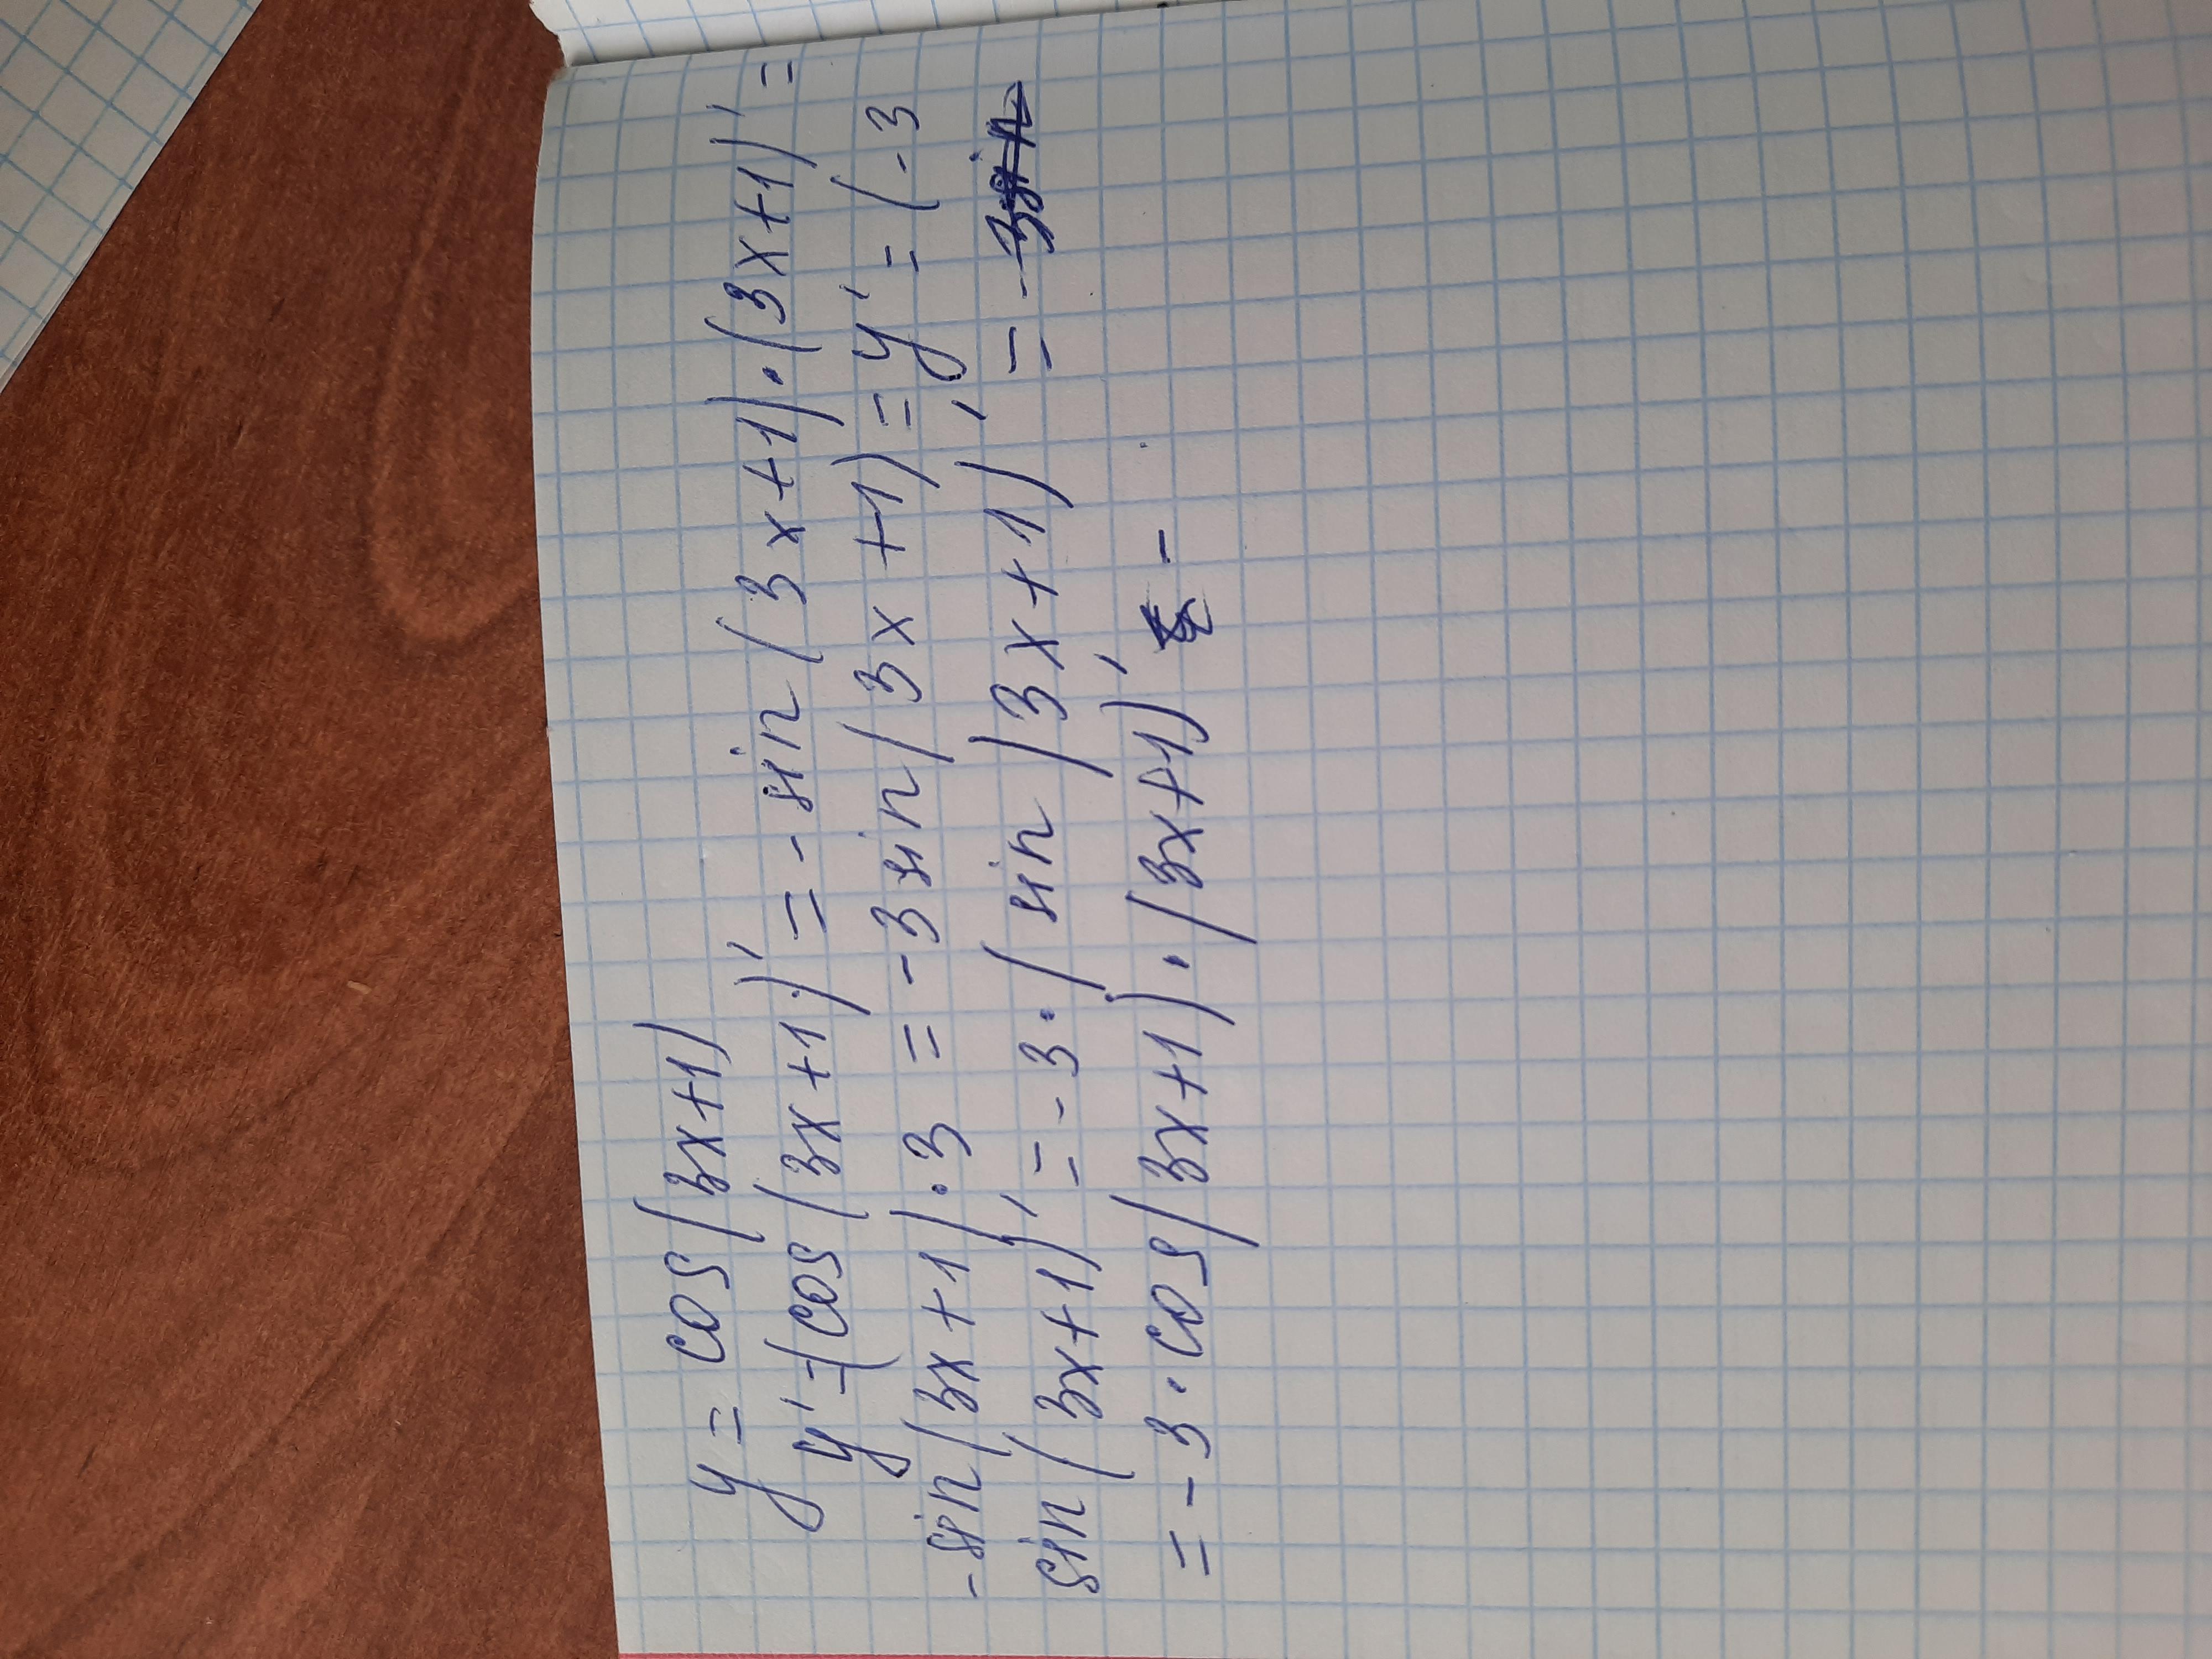 y = cos(3x+1)
y' = (cos(3x+1))' = -sin(3x+1)·(3x+1)' =
-sin(3x+1)·3 = -3sin(3x+1) = y' = (-3
sin(3x+1))' = -3·(sin(3x+1))' = -3sin
= -3·cos(3x+1)·(3x+1)' -